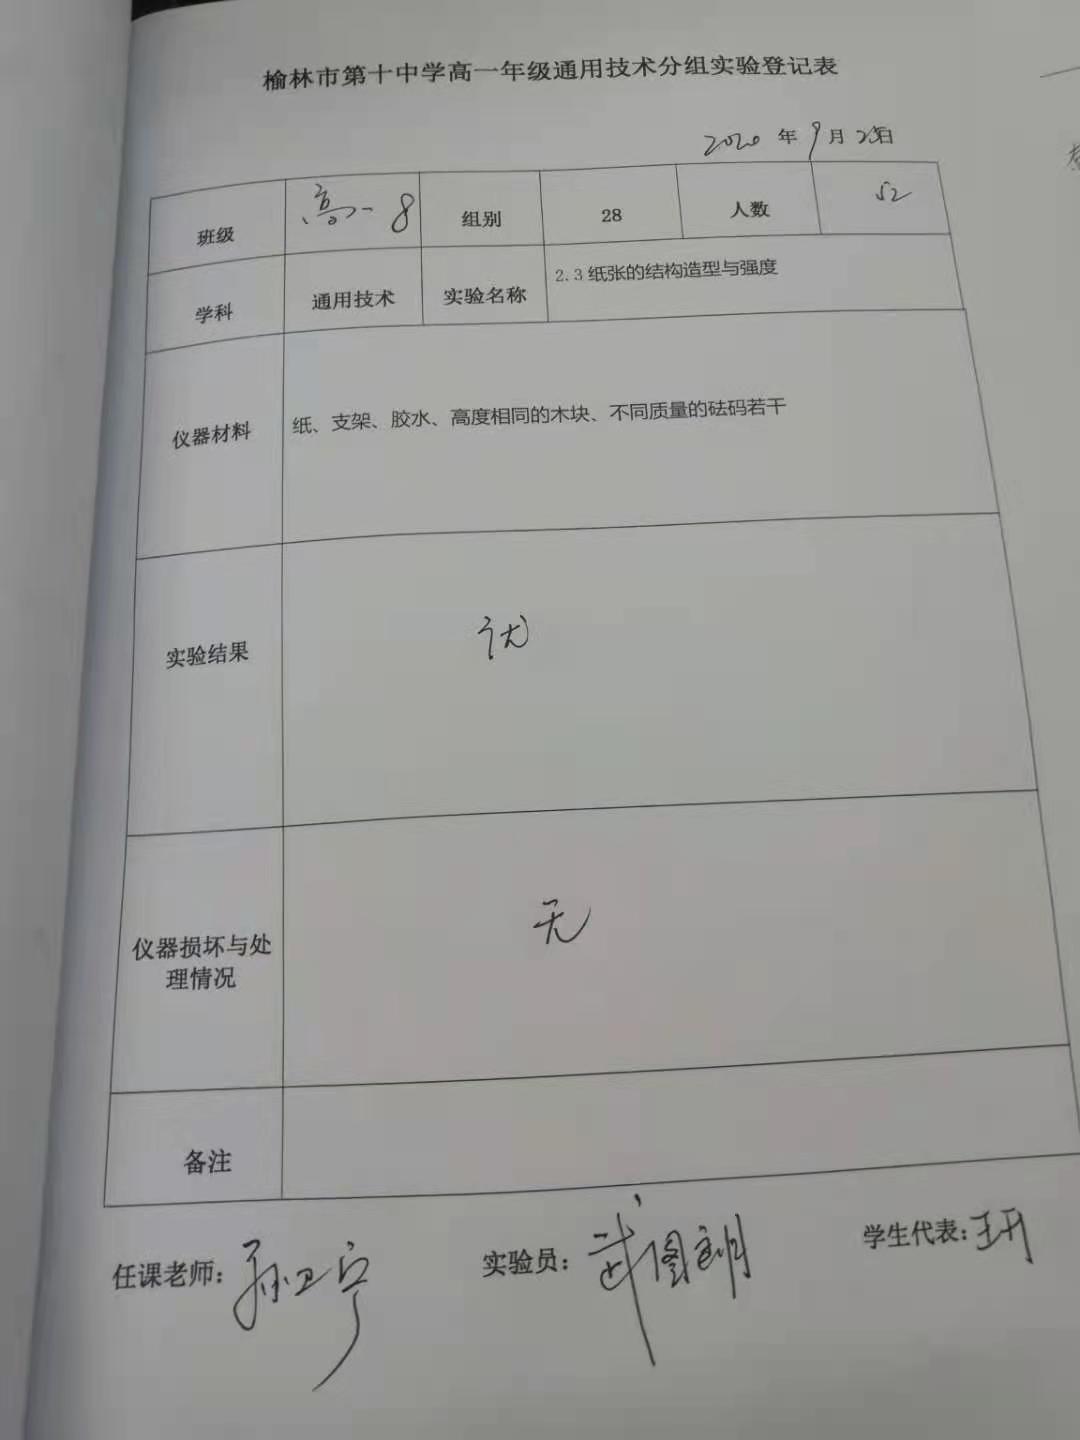 榆林市第十中学高一年级通用技术分组实验登记表
2020 年 9 月 25日
班级 高一8 组别 28 人数 52
学科 通用技术 实验名称 2.3 纸张的结构造型与强度
仪器材料 纸、支架、胶水、高度相同的木块、不同质量的砝码若干
实验结果 优
仪器损坏与处
理情况
无
备注
任课老师：孙卫宁 实验员：武图朗 学生代表：